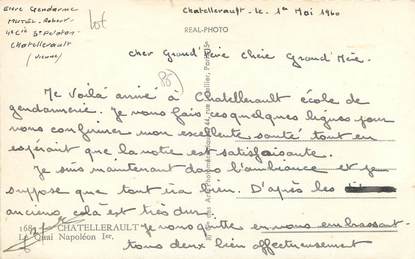 Elève Gendarme
Mutel Robert
4e Cie 5e Peloton
Chatellerault
(Vienne)
lot
Chatellerault. le. 1er Mai 1960
REAL-PHOTO
Cher Grand'Père Chère Grand'Mère.
Me Voilà arrivé à Chatellerault école de
gendarmerie. Je vous fais ces quelques lignes pour
vous confirmer mon excellente santé tout en
espérant que la votre est satisfaisante.
Je suis maintenant dans l'ambiance et je
suppose que tout ira bien. D'après les
anciens celà est très dur.
Je vous quitte en vous embrassant
tous deux bien affectueusement
168 CHATELLERAULT
Le Quai Napoléon Ier.